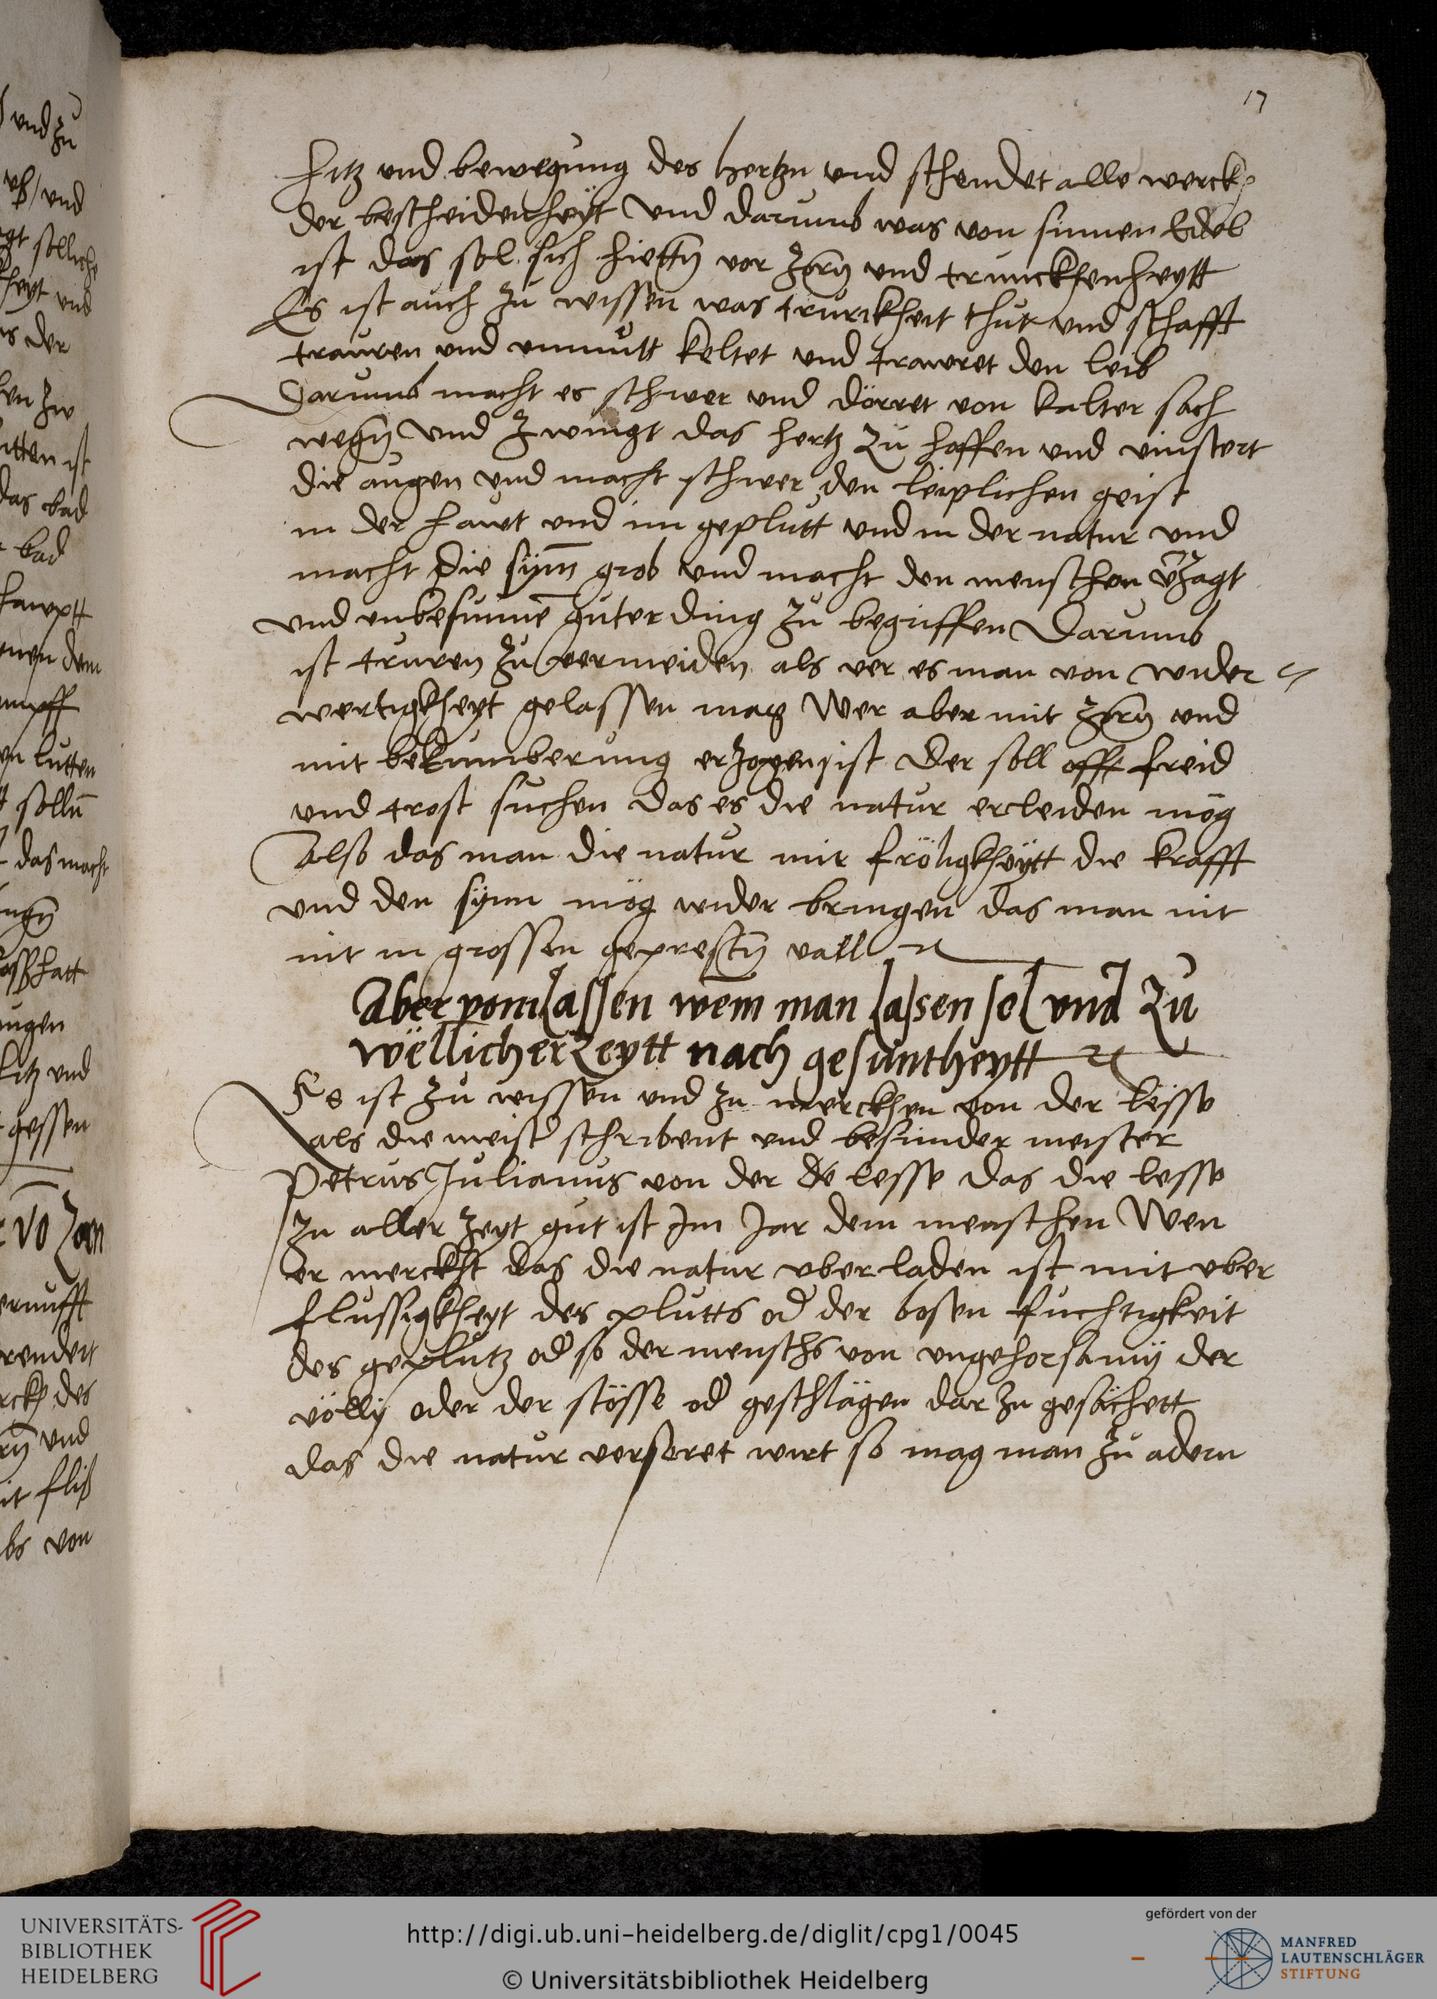 17
hitz und bewegung des hertzn und schendet alle werck
der bescheidenheÿt Und darumb was von sinnen Edel
ist das sol sich hietten vor Zorn und trunckhenheytt
Es ist auch zu wissen was trurickheit thut und schafft
trauren und unmutt keltet und trawret den leib
Darumb macht es schwer und dörret von kalter sach
wegen Und Zwingt das hertz Zu hoffen und vinstert
die augen und macht schwer den leiplichen geist
in der hawt und im geplutt und in der natur und
macht die sÿnn grob und macht den menschen vZagt
und unbesunne guter ding Zu begriffen Darumb
ist truren Zu vermeiden als ver es man von wider
wertigkheyt gelassen mag Wer aber mit Zorn und
mit bekumberung erZogen ist Der soll offt freid
und trost suchen das es die natur erleiden mög
Also das man die natur mit fröligkheÿtt die krafft
und den synn mög wider bringen das man nit
nit in grossen geprestn vall
Aber vom lassen wem man lassen sol und Zu
wëllicher Zeytt nach gesuntheytt
Es ist Zu wissen und Zu merckhen von der lesse
als die meist schribent und besunder meister
Petrus Julianus von der de lesse das die lesse
Zu aller Zeyt gut ist Im Jar dem menschen Wen
er merckht das die natur uber laden ist mit uber
flussigkheyt des plutts od der bosen fuchtigkeit
des geplutz od so der menschs von ungehorsamÿ der
völlÿ oder der stösse od geschlägen dar Zu gesächett
das die natur verseret wirt so mag man Zu adern
und Zu
und
der
das bad
bad
und
gessen
des
und
von
UNIVERSITÄTS-
BIBLIOTHEK
HEIDELBERG
http://digi.ub.uni-heidelberg.de/diglit/cpg1/0045
© Universitätsbibliothek Heidelberg
gefördert von der
MANFRED
LAUTENSCHLÄGER
STIFTUNG